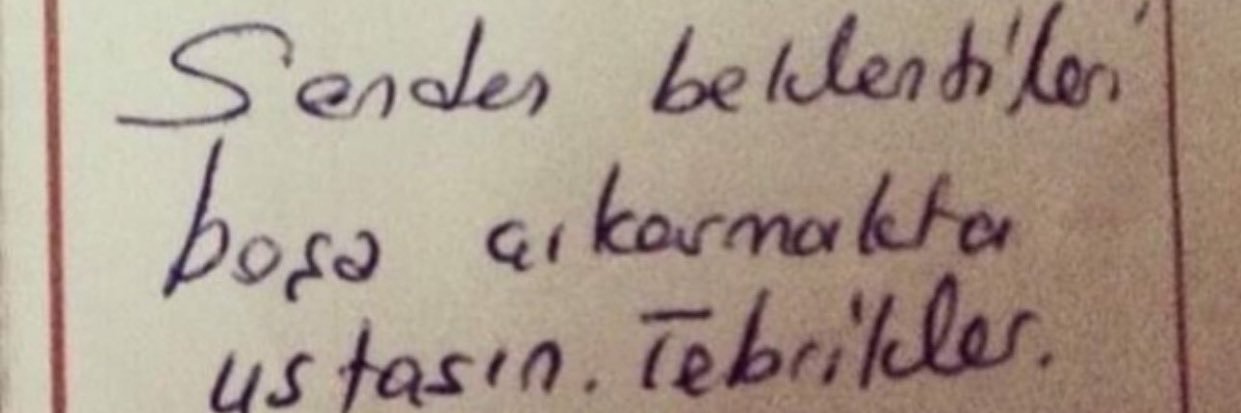 Senden beklentileri
boşa çıkarmakta
ustasın. Tebrikler.